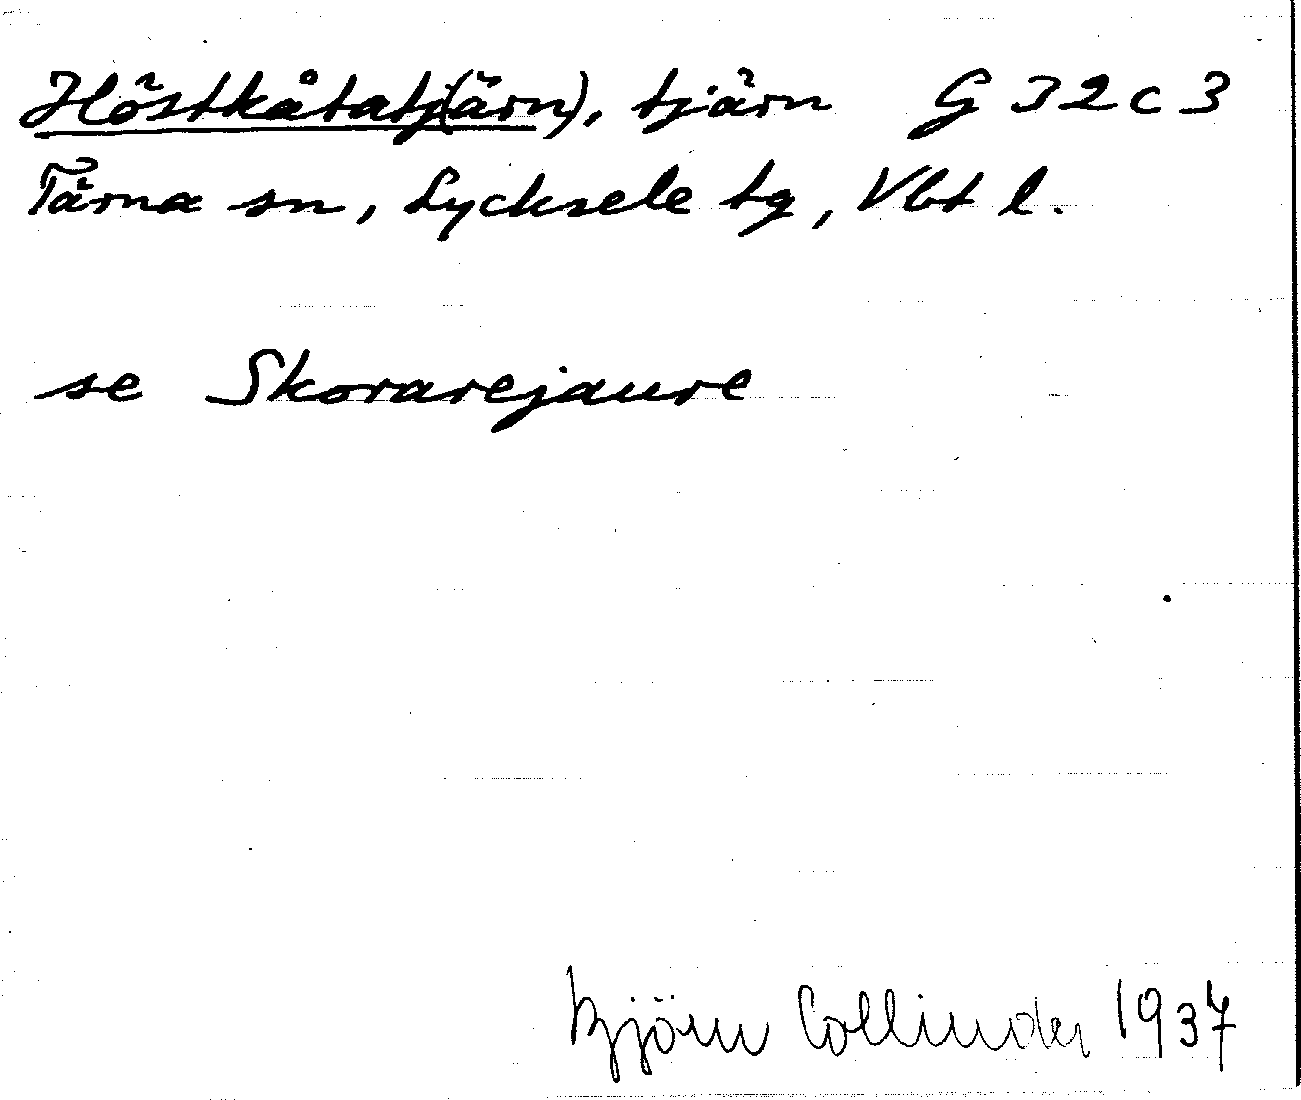 Höstkåtatj(ärn), tjärn G 32 c 3
Tärna sn, Lycksele tg, Vbt l.
se Skorarejaure
Björn Collinder 1937